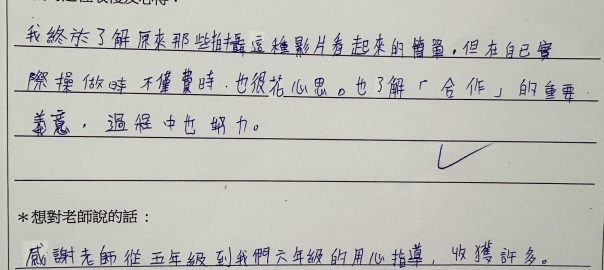 我終於了解原來那些拍攝這種影片看起來的簡單，但在自己實
際操做時不僅費時，也很花心思。也了解「合作」的重要
義意，過程中也努力。
＊想對老師說的話：
感謝老師從五年級到我們六年級的用心指導，收獲許多。